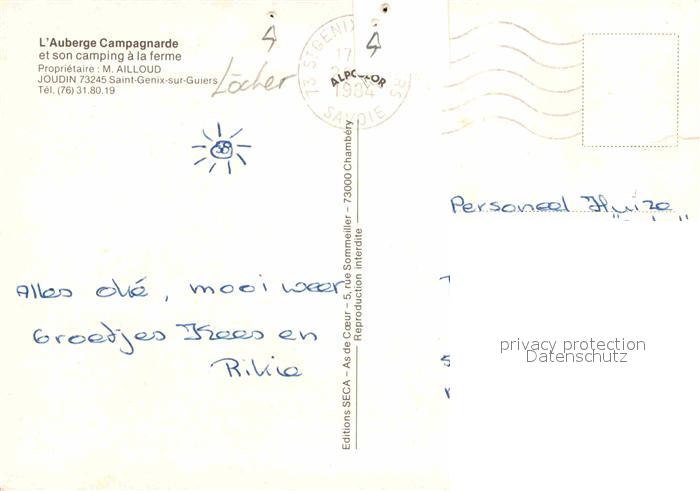 L'Auberge Campagnarde
et son camping à la ferme
Propriétaire : M. AILLOUD
JOUDIN 73245 Saint-Genix-sur-Guiers
Tél. (76) 31.80.19
Löcher
4
4
73 ST GENIX
RS
17
1984
SAVOIE
ALPCOLOR
Editions SECA – As de Cœur – 5, rue Sommeiller – 73000 Chambéry
Reproduction interdite
Alles oké, mooi weer
Groetjes Kees en
Rikie
Personeel Huize
privacy protection
Datenschutz